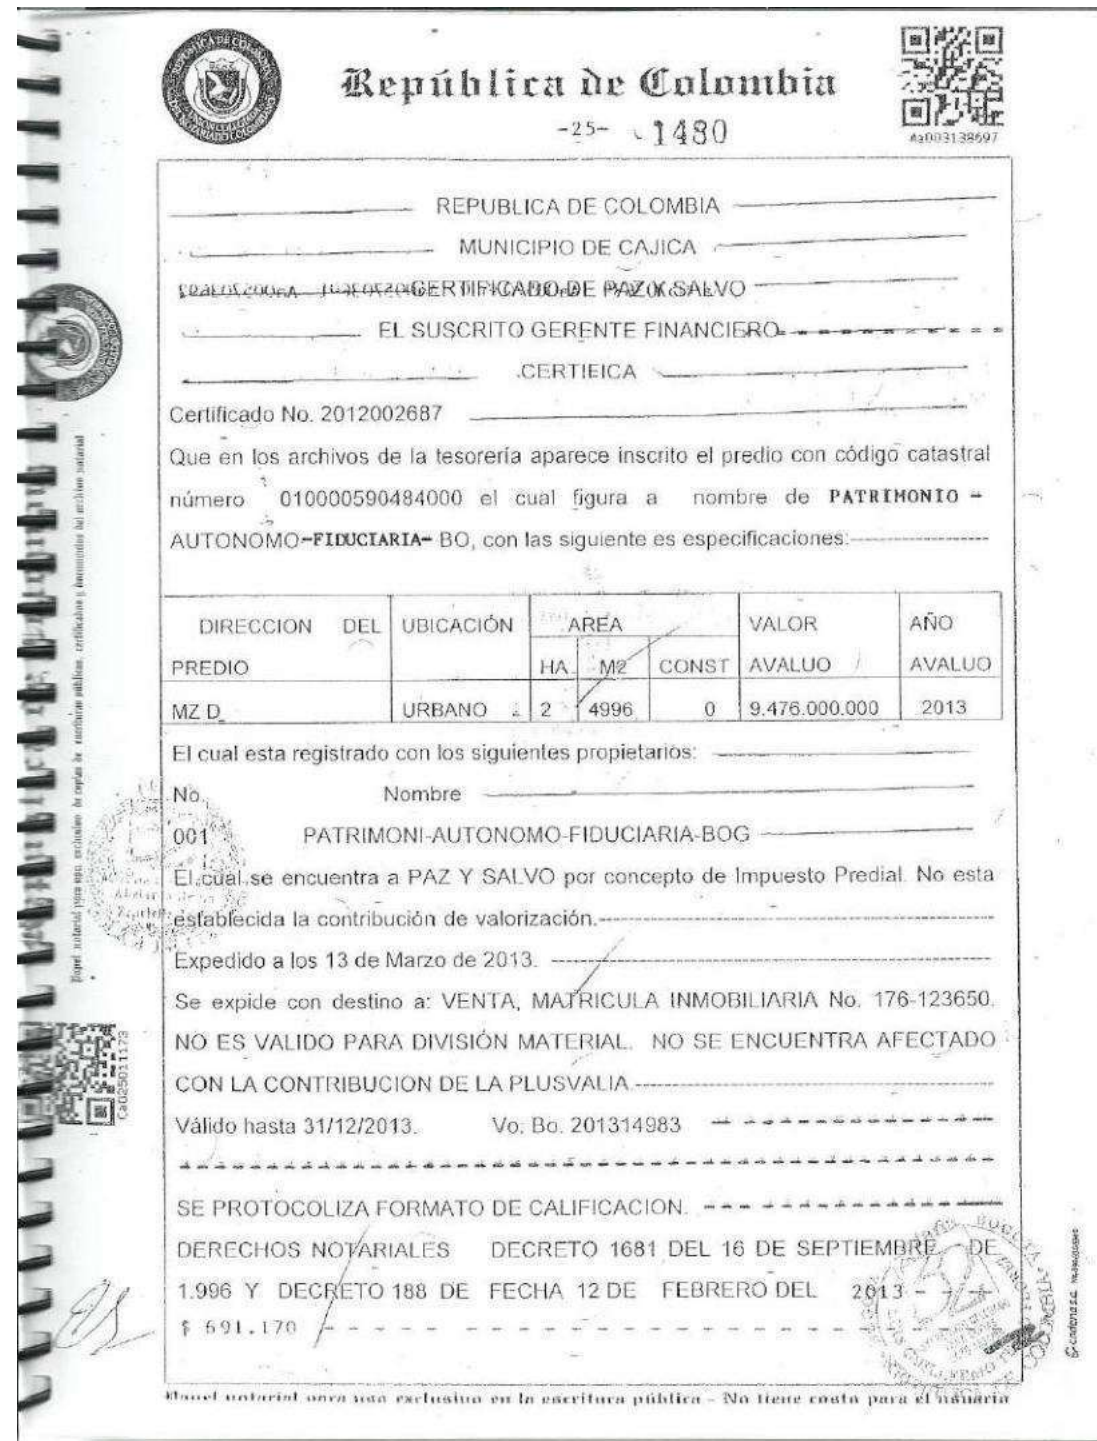 República de Colombia
-25- 1480
Aa003138697
REPUBLICA DE COLOMBIA
MUNICIPIO DE CAJICA
CERTIFICADO DE PAZ Y SALVO
EL SUSCRITO GERENTE FINANCIERO
CERTIFICA
Certificado No. 2012002687
Que en los archivos de la tesorería aparece inscrito el predio con código catastral
número 010000590484000 el cual figura a nombre de PATRIMONIO -
AUTONOMO-FIDUCIARIA- BO, con las siguiente es especificaciones:
DIRECCION DEL PREDIO UBICACIÓN AREA VALOR AVALUO AÑO AVALUO
HA. M2 CONST
MZ D URBANO 2 4996 0 9.476.000.000 2013
El cual esta registrado con los siguientes propietarios:
No. Nombre
001 PATRIMONI-AUTONOMO-FIDUCIARIA-BOG
El cual se encuentra a PAZ Y SALVO por concepto de Impuesto Predial. No esta
establecida la contribución de valorización.
Expedido a los 13 de Marzo de 2013.
Se expide con destino a: VENTA, MATRICULA INMOBILIARIA No. 176-123650.
NO ES VALIDO PARA DIVISIÓN MATERIAL. NO SE ENCUENTRA AFECTADO
CON LA CONTRIBUCION DE LA PLUSVALIA
Válido hasta 31/12/2013. Vo. Bo. 201314983
SE PROTOCOLIZA FORMATO DE CALIFICACION.
DERECHOS NOTARIALES DECRETO 1681 DEL 16 DE SEPTIEMBRE DE
1.996 Y DECRETO 188 DE FECHA 12 DE FEBRERO DEL 2013
$ 691.170
Papel notarial para uso exclusivo en la escritura pública - No tiene costo para el usuario
Papel notarial para uso exclusivo de copias de escrituras públicas, certificados y documentos del archivo notarial
Ca025011173